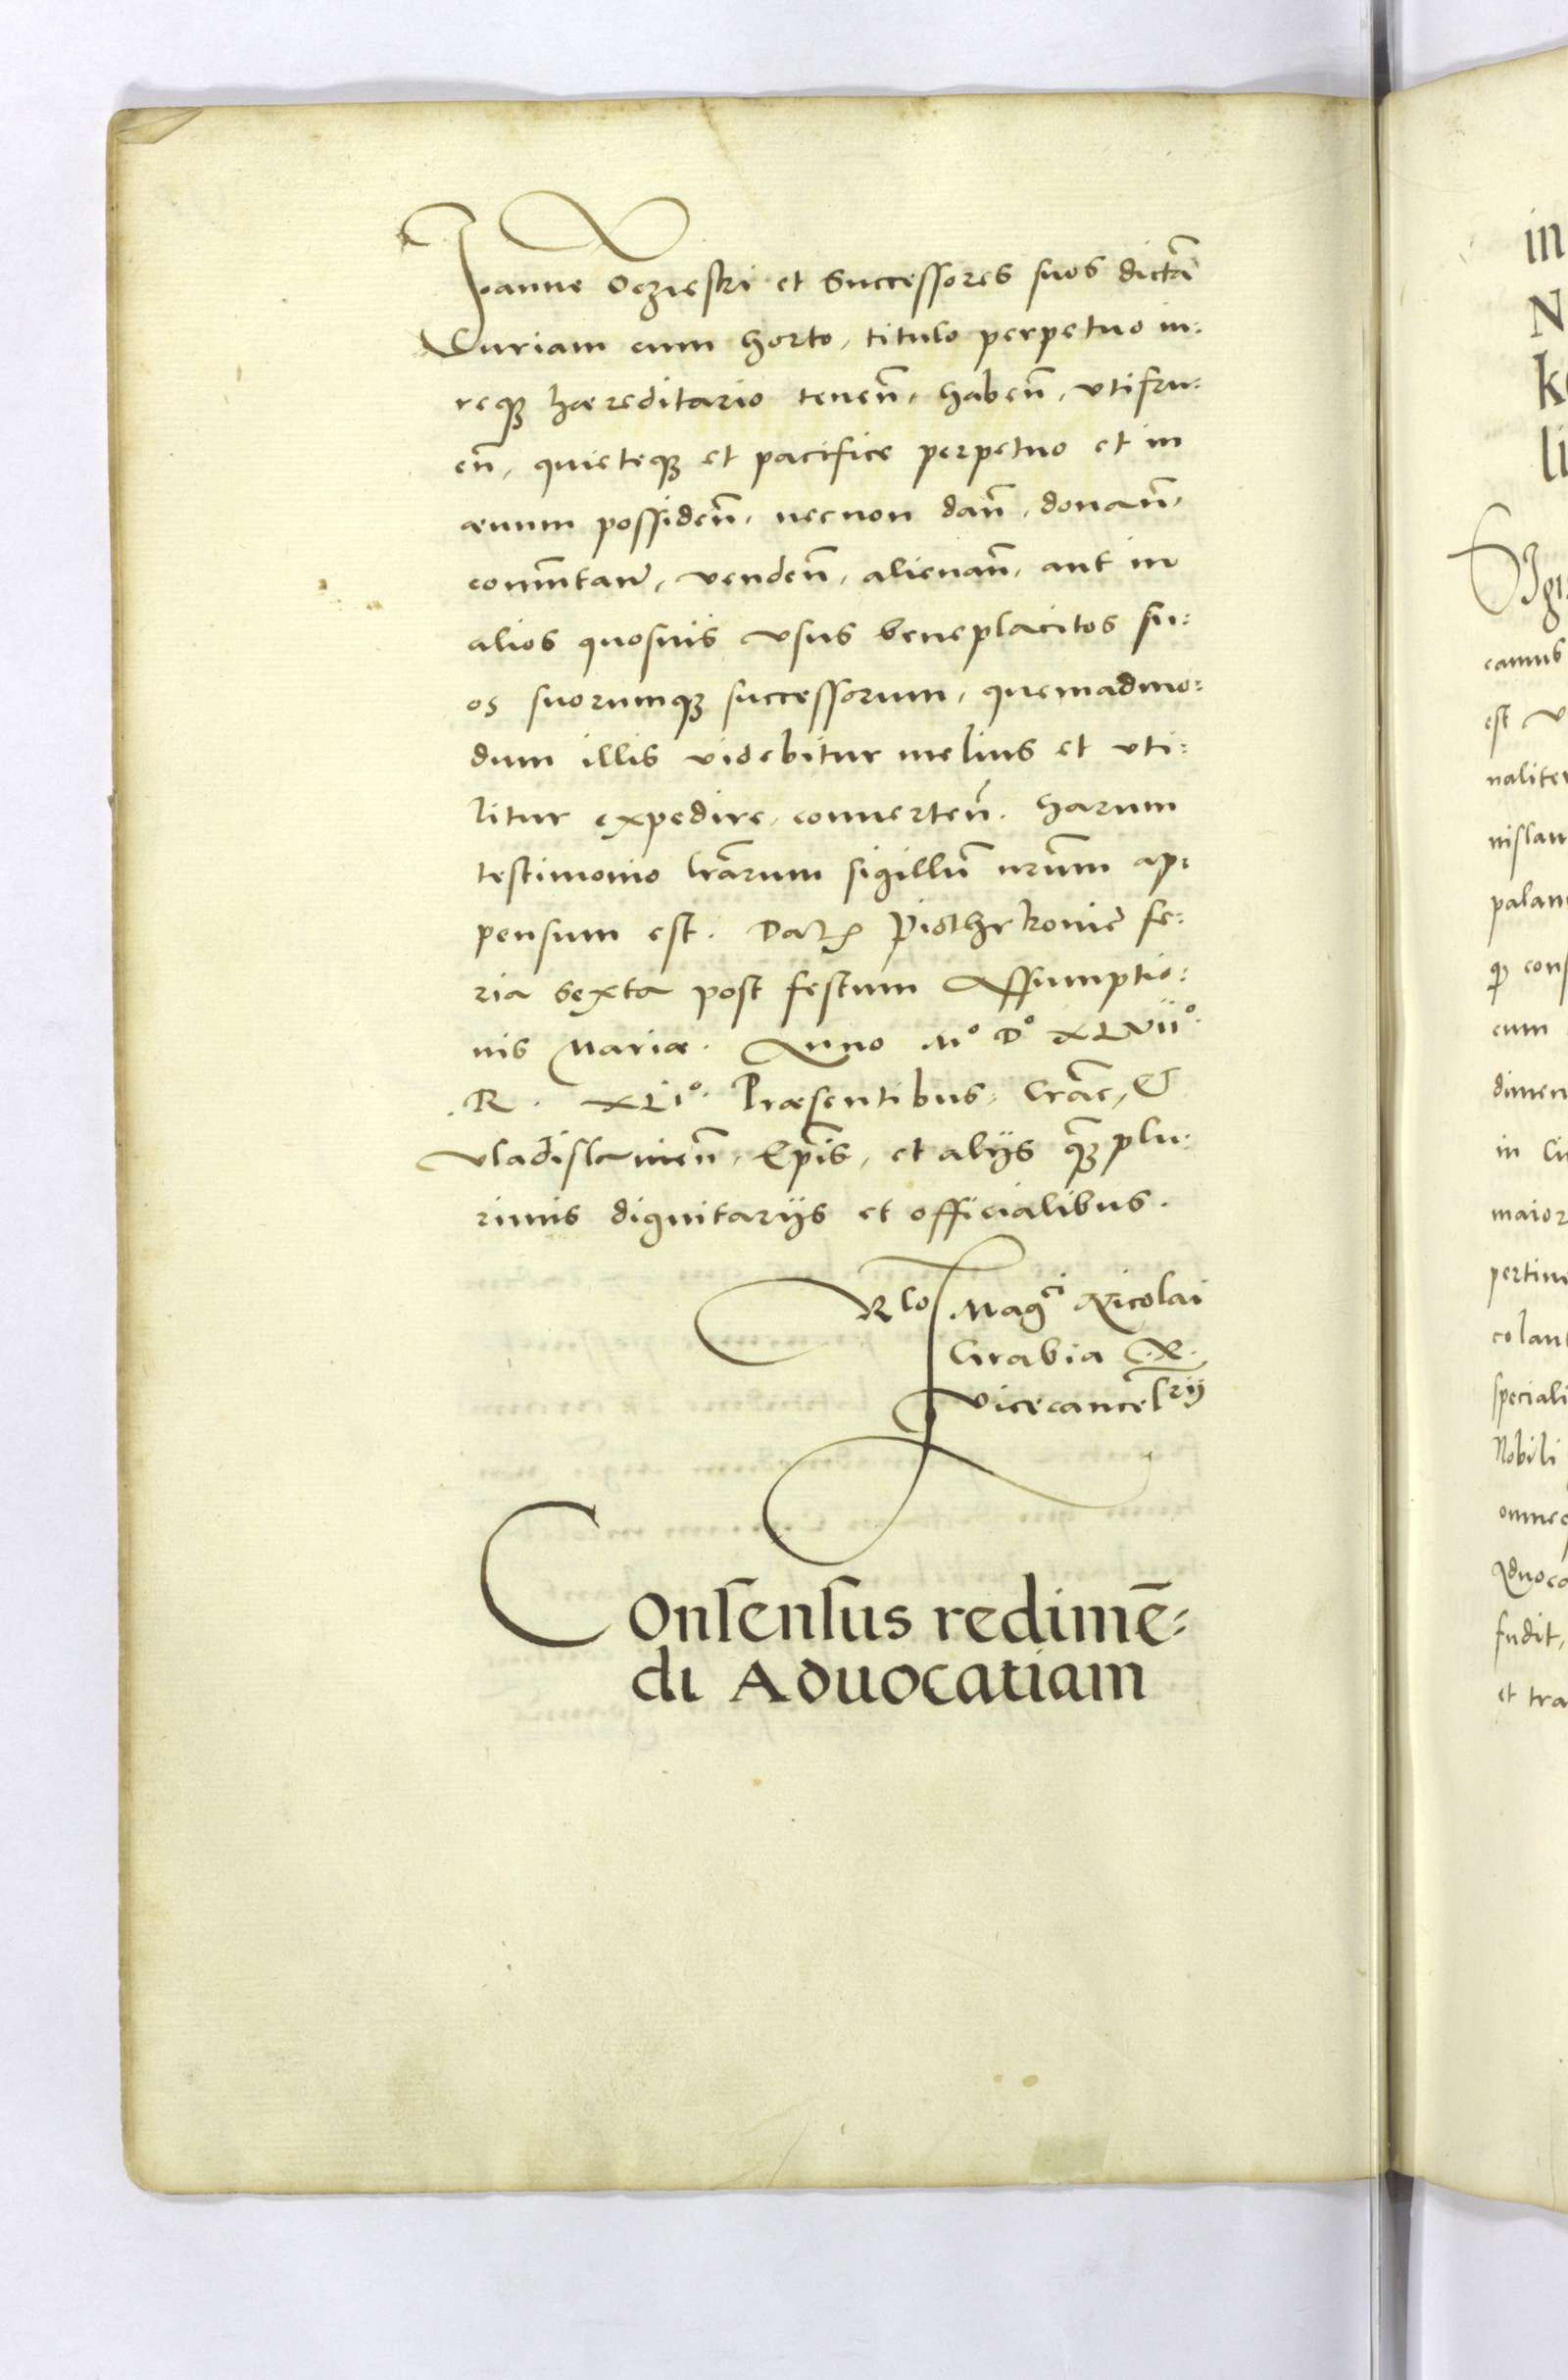 Joanne Oczieski et Successores suos dictā
Curiam cum horto, titulo perpetuo iu:
reqȝ hæreditario teneñ, habeñ, vtifru:
eñ, quieteqȝ et pacifice perpetuo et in
æuum possideñ, necnon dañ, donañ,
commutañ, vendeñ, alienañ, aut in
alios quosuis vsus beneplacitos su:
os suorumqȝ successorum, quemadmo:
dum illis videbitur melius et vti:
litur expedire, conuerteñ. Harum
testimonio lr̄arum sigillū nr̄um ap:
pensum est. Dat Piothrkouie fe:
ria sexta post festum Assumptio:
nis Mariæ. Anno Mº Dº XLVIIº
R. XLIº. Præsentibus, Crac, &
Vladislauieñ, Ep̄is, et alijs qȝ plu:
rimis dignitarijs et officialibus.
Rlo Magci Nicolai
Grabia .R.
Vicecancelrij
Consensus redimē:
di Aduocatiam
in
N
k
li
Sigi
camus
est v
naliter
nislau
palam
cons
cum
dimen
in
maior
pertine
colant
speciali
Nobili
omnes
Aduoca
fudit,
et tra